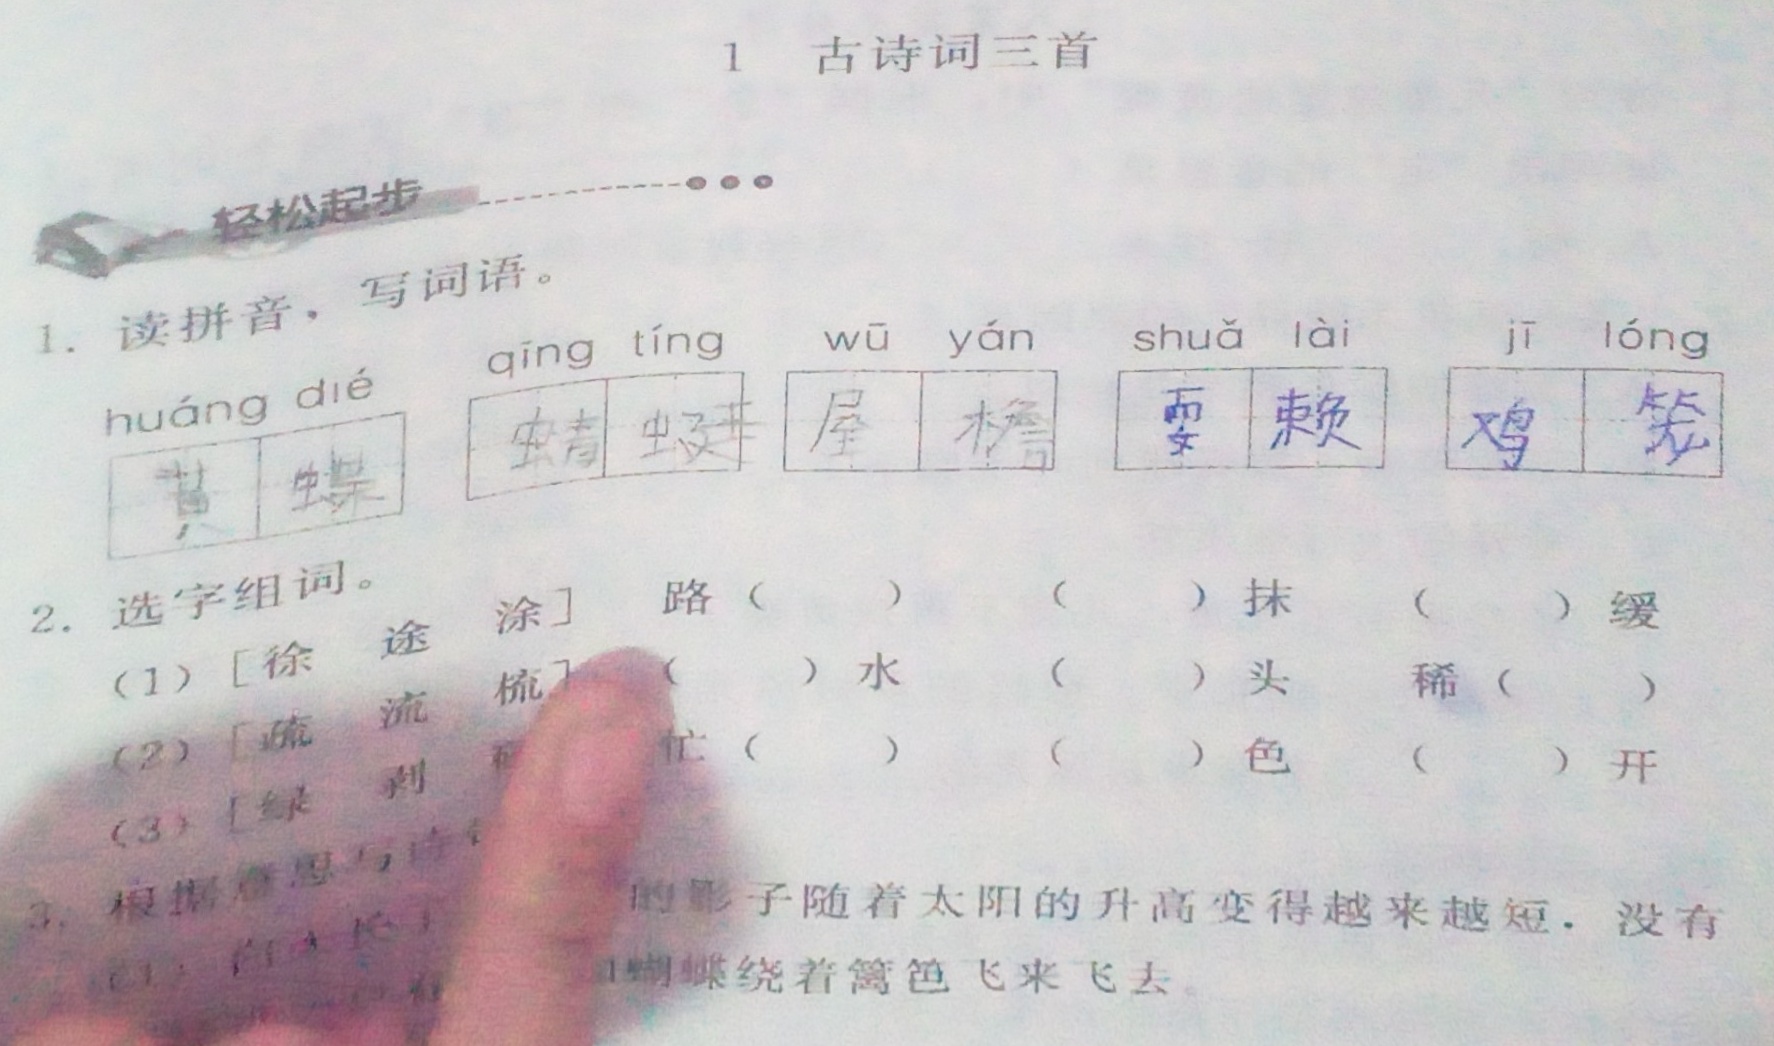 1 古诗词三首
轻松起步
1. 读拼音，写词语。
huáng dié qīng tíng wū yán shuǎ lài jī lóng
黄 蝶 蜻 蜓 屋 檐 耍 赖 鸡 笼
2. 选字组词。
（1）[徐 途 涂] 路（ ） （ ）抹 （ ）缓
（2）[疏 流 梳] （ ）水 （ ）头 稀（ ）
（3）[绿 剥 忙（ ） （ ）色 （ ）开
3. 根据意思写诗
（1） 的影子随着太阳的升高变得越来越短．没有
蝴蝶绕着篱笆飞来飞去。